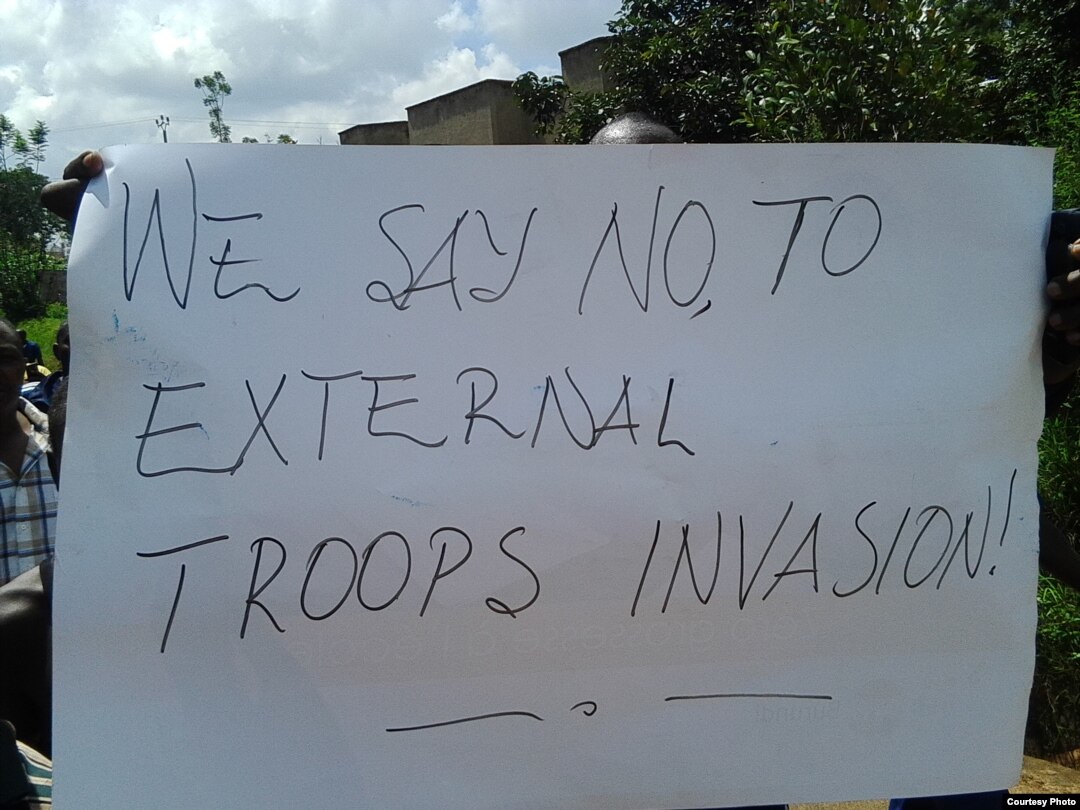 WE SAY NO, TO
EXTERNAL
TROOPS INVASION!
Courtesy Photo